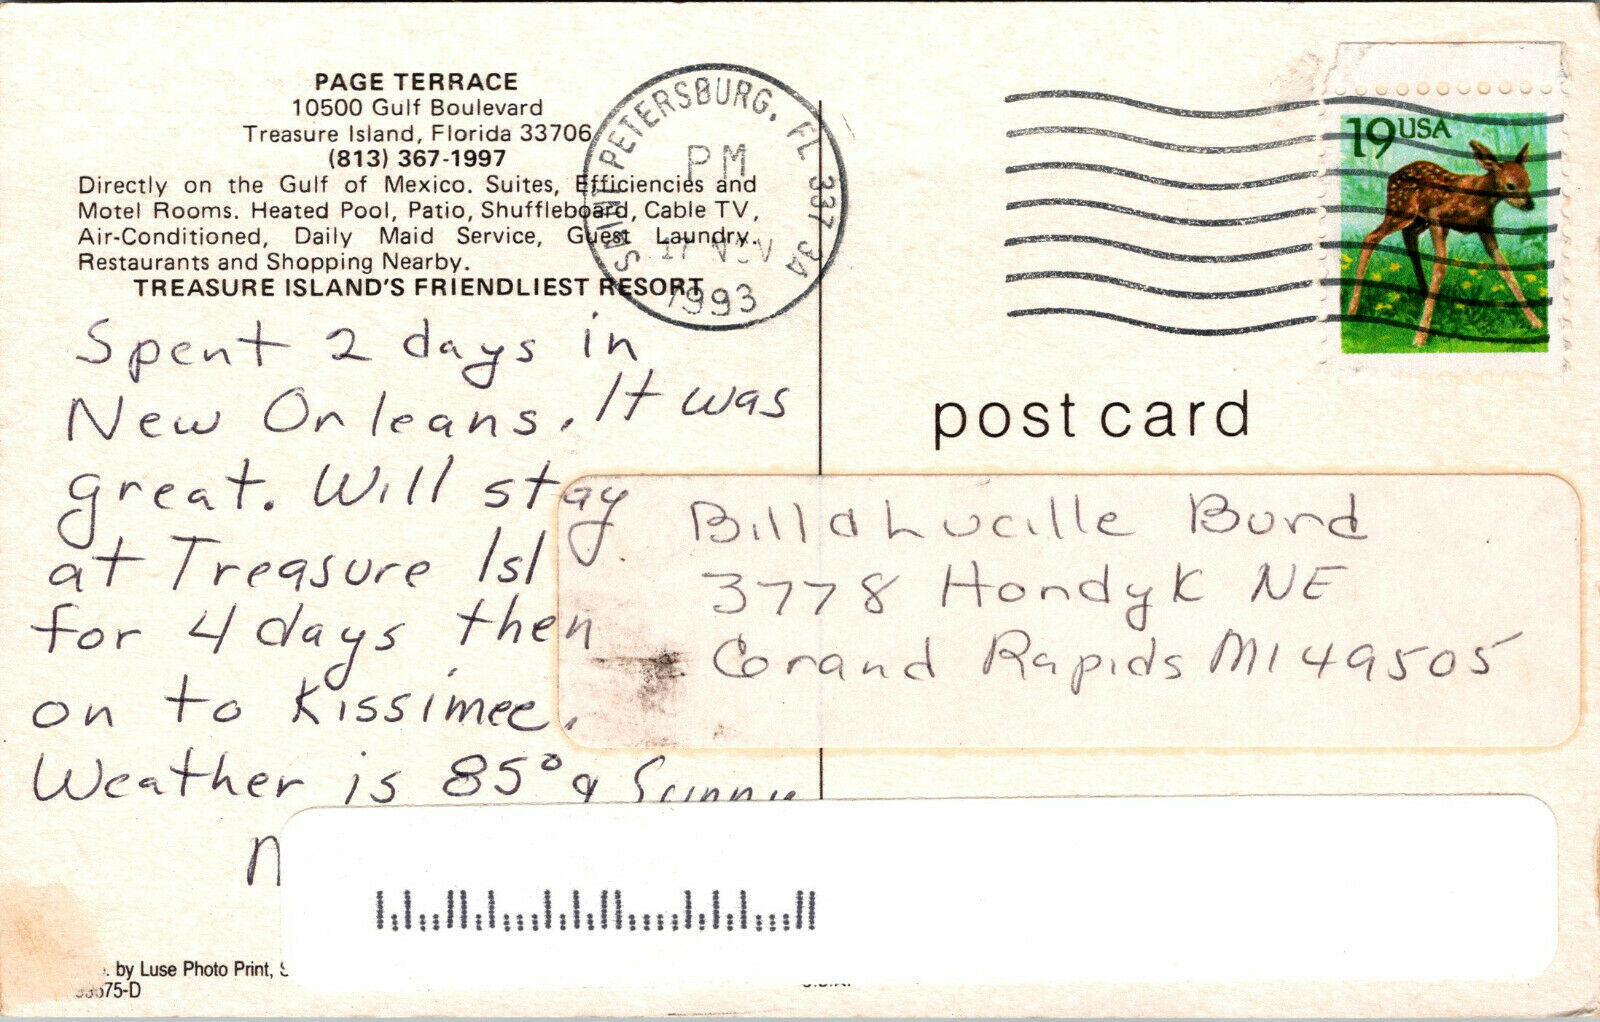 PAGE TERRACE
10500 Gulf Boulevard
Treasure Island, Florida 33706
(813) 367-1997
Directly on the Gulf of Mexico. Suites, Efficiencies and
Motel Rooms. Heated Pool, Patio, Shuffleboard, Cable TV,
Air-Conditioned, Daily Maid Service, Guest Laundry.
Restaurants and Shopping Nearby.
TREASURE ISLAND'S FRIENDLIEST RESORT
SAINT PETERSBURG, FL 337 3A
PM
17 NOV
1993
19 USA
Spent 2 days in
New Orleans. It was
great. Will stay
at Treasure Isl
for 4 days then
on to Kissimee.
Weather is 85° & Sunny
post card
Bill & Lucille Burd
3778 Hondyk NE
Grand Rapids MI 49505
. by Luse Photo Print, S
75-D
U.S.A.